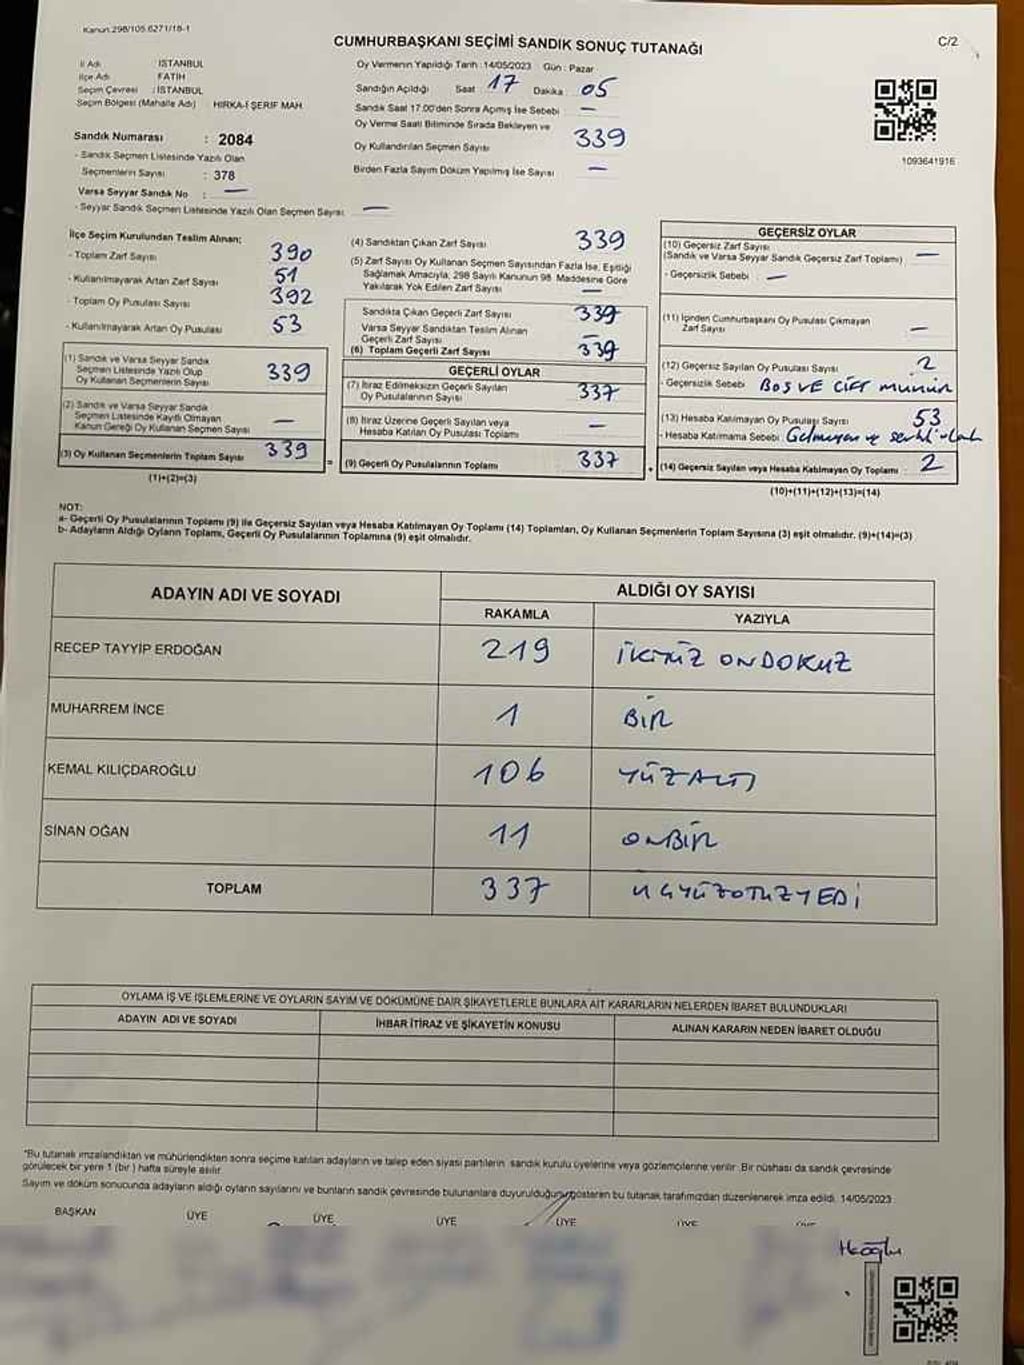 Kanun:298/105.6271/18-1
C/2
CUMHURBAŞKANI SEÇİMİ SANDIK SONUÇ TUTANAĞI
İl Adı : İSTANBUL
İlçe Adı : FATİH
Seçim Çevresi : İSTANBUL
Seçim Bölgesi (Mahalle Adı) HIRKA-İ ŞERİF MAH.
Sandık Numarası : 2084
- Sandık Seçmen Listesinde Yazılı Olan
Seçmenlerin Sayısı : 378
Varsa Seyyar Sandık No : —
- Seyyar Sandık Seçmen Listesinde Yazılı Olan Seçmen Sayısı: —
Oy Vermenin Yapıldığı Tarih :14/05/2023 Gün : Pazar
Sandığın Açıldığı Saat : 17 Dakika : 05
Sandık Saat 17.00'den Sonra Açılmış İse Sebebi —
Oy Verme Saati Bitiminde Sırada Bekleyen ve
Oy Kullandırılan Seçmen Sayısı 339
Birden Fazla Sayım Döküm Yapılmış İse Sayısı —
1093641916
İlçe Seçim Kurulundan Teslim Alınan;
- Toplam Zarf Sayısı 390
- Kullanılmayarak Artan Zarf Sayısı 51
- Toplam Oy Pusulası Sayısı 392
- Kullanılmayarak Artan Oy Pusulası 53
(1) Sandık ve Varsa Seyyar Sandık
Seçmen Listesinde Yazılı Olup
Oy Kullanan Seçmenlerin Sayısı 339
(2) Sandık ve Varsa Seyyar Sandık
Seçmen Listesinde Kayıtlı Olmayan
Kanun Gereği Oy Kullanan Seçmen Sayısı —
(3) Oy Kullanan Seçmenlerin Toplam Sayısı 339
(1)+(2)=(3)
(4) Sandıktan Çıkan Zarf Sayısı 339
(5) Zarf Sayısı Oy Kullanan Seçmen Sayısından Fazla İse, Eşitliği
Sağlamak Amacıyla, 298 Sayılı Kanunun 98. Maddesine Göre
Yakılarak Yok Edilen Zarf Sayısı —
Sandıkta Çıkan Geçerli Zarf Sayısı 339
Varsa Seyyar Sandıktan Teslim Alınan
Geçerli Zarf Sayısı —
(6) Toplam Geçerli Zarf Sayısı 339
GEÇERLİ OYLAR
(7) İtiraz Edilmeksizin Geçerli Sayılan
Oy Pusulalarının Sayısı 337
(8) İtiraz Üzerine Geçerli Sayılan veya
Hesaba Katılan Oy Pusulası Toplamı —
= (9) Geçerli Oy Pusulalarının Toplamı 337 +
GEÇERSİZ OYLAR
(10) Geçersiz Zarf Sayısı
(Sandık ve Varsa Seyyar Sandık Geçersiz Zarf Toplamı) —
- Geçersizlik Sebebi : —
(11) İçinden Cumhurbaşkanı Oy Pusulası Çıkmayan
Zarf Sayısı —
(12) Geçersiz Sayılan Oy Pusulası Sayısı : 2
- Geçersizlik Sebebi : BOŞ VE ÇİFT MÜHÜR
(13) Hesaba Katılmayan Oy Pusulası Sayısı 53
- Hesaba Katılmama Sebebi : Gelmeyen ve
(14) Geçersiz Sayılan veya Hesaba Katılmayan Oy Toplamı : 2
(10)+(11)+(12)+(13)=(14)
NOT:
a- Geçerli Oy Pusulalarının Toplamı (9) ile Geçersiz Sayılan veya Hesaba Katılmayan Oy Toplamı (14) Toplamları, Oy Kullanan Seçmenlerin Toplam Sayısına (3) eşit olmalıdır. (9)+(14)=(3)
b- Adayların Aldığı Oyların Toplamı, Geçerli Oy Pusulalarının Toplamına (9) eşit olmalıdır.
ADAYIN ADI VE SOYADI ALDIĞI OY SAYISI
RAKAMLA YAZIYLA
RECEP TAYYİP ERDOĞAN 219 İKİYÜZ ONDOKUZ
MUHARREM İNCE 1 BİR
KEMAL KILIÇDAROĞLU 106 YÜZALTI
SİNAN OĞAN 11 ONBİR
TOPLAM 337 ÜÇYÜZOTUZYEDİ
OYLAMA İŞ VE İŞLEMLERİNE VE OYLARIN SAYIM VE DÖKÜMÜNE DAİR ŞİKAYETLERLE BUNLARA AİT KARARLARIN NELERDEN İBARET BULUNDUKLARI
ADAYIN ADI VE SOYADI İHBAR İTİRAZ VE ŞİKAYETİN KONUSU ALINAN KARARIN NEDEN İBARET OLDUĞU
*Bu tutanak imzalandıktan ve mühürlendikten sonra seçime katılan adayların ve talep eden siyasi partilerin sandık kurulu üyelerine veya gözlemcilerine verilir. Bir nüshası da sandık çevresinde
görülecek bir yere 1 (bir ) hafta süreyle asılır.
Sayım ve döküm sonucunda adayların aldığı oyların sayılarını ve bunların sandık çevresinde bulunanlara duyurulduğunu gösteren bu tutanak tarafımızdan düzenlenerek imza edildi. 14/05/2023
BAŞKAN ÜYE ÜYE ÜYE ÜYE ÜYE